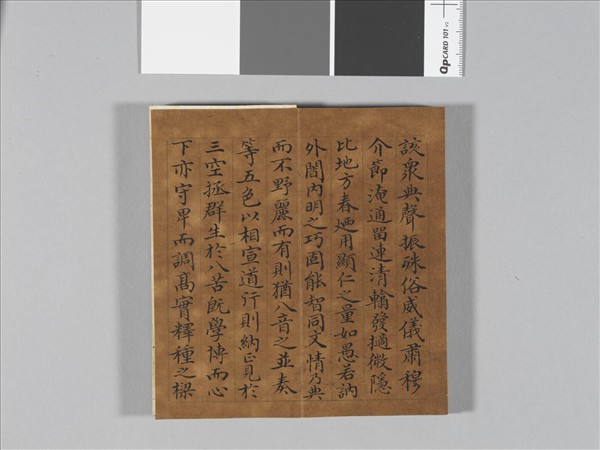 QPCARD 101 v2
該衆典聲振殊俗威儀肅穆
介節淹通留連清翰發擿微隱
比地方春廼用顯仁之量如愚若訥
外闇内明之巧固能智同文情乃典
而不野麗而有則猶八音之並奏
等五色以相宣道行則納正見於
三空拯群生於八苦既學博而心
下亦守卑而調高實釋種之樑